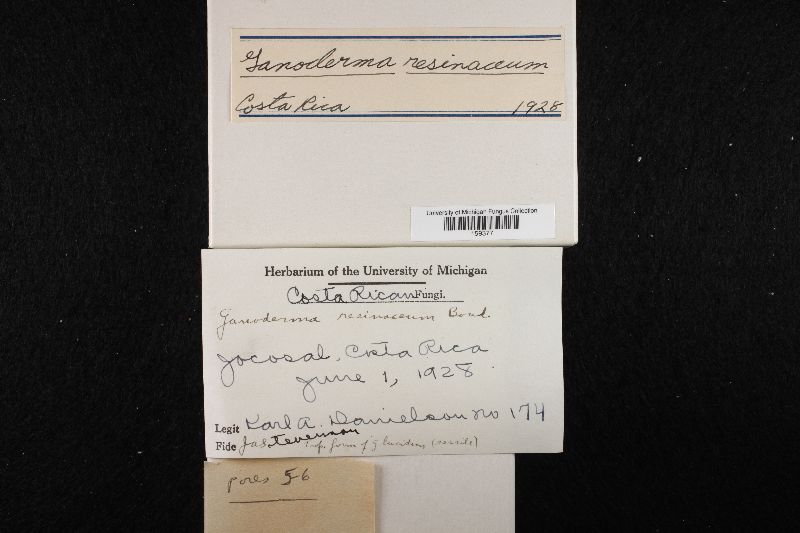 Ganoderma resinaceum
Costa Rica 1928
University of Michigan Fungus Collection
159377
Herbarium of the University of Michigan
Costa Rican Fungi.
Ganoderma resinaceum Boud.
Jocosal, Costa Rica
June 1, 1928
Legit Karl A. Danielson no 174
Fide Jas. Stevenson Trop. form of G lucidum (sessile)
pores 5-6